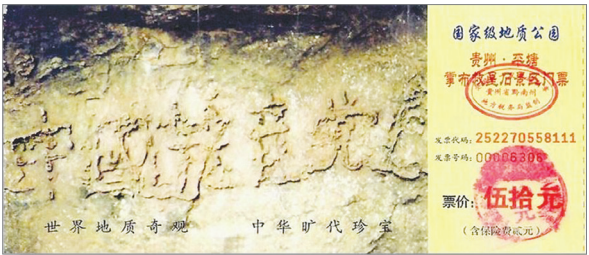 中国共产党
世界地质奇观 中华旷代珍宝
国家级地质公园
贵州·平塘
掌布救星石景区门票
贵州省黔南州
地方税务局监制
发票代码: 252270558111
发票号码: 00006306
票价: 伍拾元
（含保险费贰元）